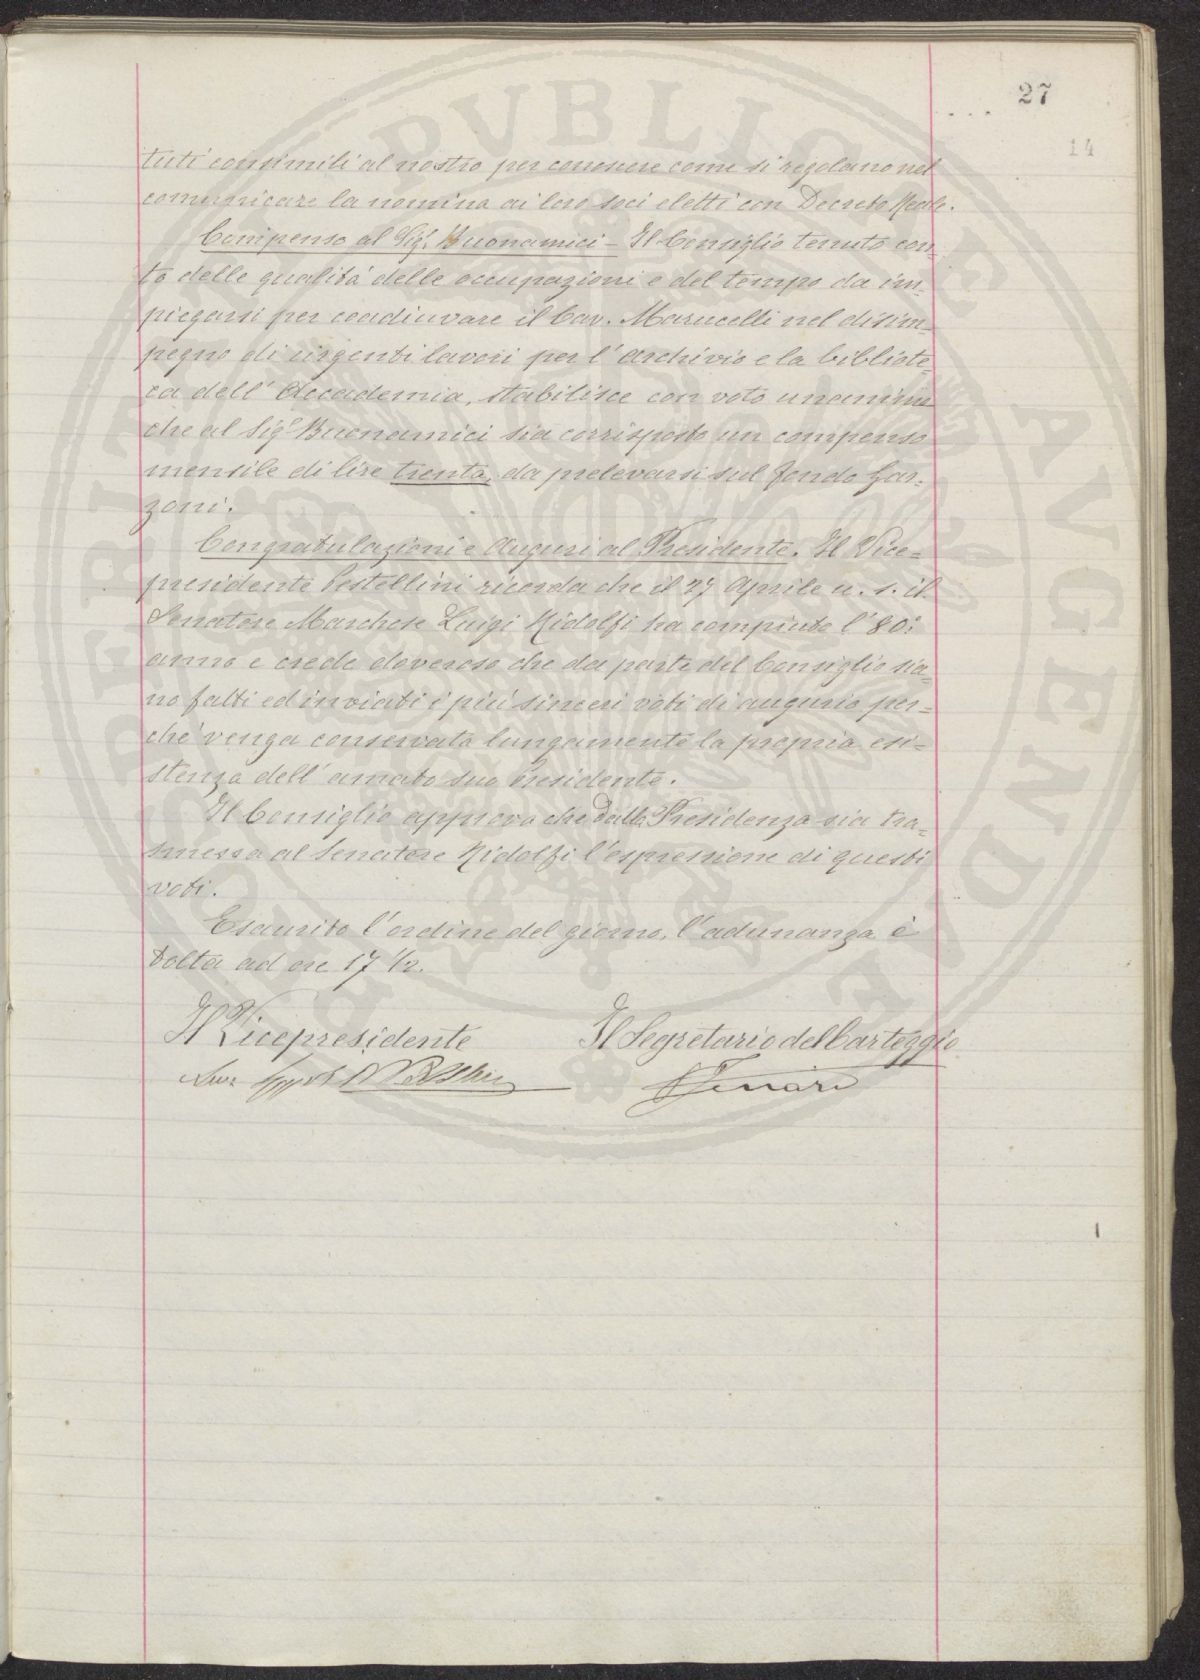 27
14
tuti consimili al nostro per conoscere come si regolano nel
comunicare la nomina ai loro soci eletti con Decreto Reale.
Compenso al Sigr. Buonamici - Il Consiglio tenuto con=
to delle qualità delle occupazioni e del tempo da im=
piegarsi per coadiuvare il Cav. Marucelli nel disim=
pegno di urgenti lavori per l'archivio e la bibliote=
ca dell'Accademia, stabilisce con voto unanime
che al Sigr Buonamici sia corrisposto un compenso
mensile di lire trenta, da prelevarsi sul fondo Gar=
zoni.
Congratulazioni e Auguri al Presidente. Il Vice=
presidente Pestellini ricorda che il 27 Aprile u. s. il
Senatore Marchese Luigi Ridolfi ha compiuto l'80°
anno e crede doveroso che da parte del Consiglio sia=
no fatti ed inviati i più sinceri voti di augurio per=
chè venga conservata lungamente la propria esi=
stenza dell'amato suo Presidente.
Il Consiglio approva che dalla Presidenza sia tra=
smessa al Senatore Ridolfi l'espressione di questi
voti.
Esaurito l'ordine del giorno, l'adunanza è
tolta ad ore 17 1/2.
Il Vicepresidente Il Segretario del Carteggio
PVBLICAE AVGENDAE